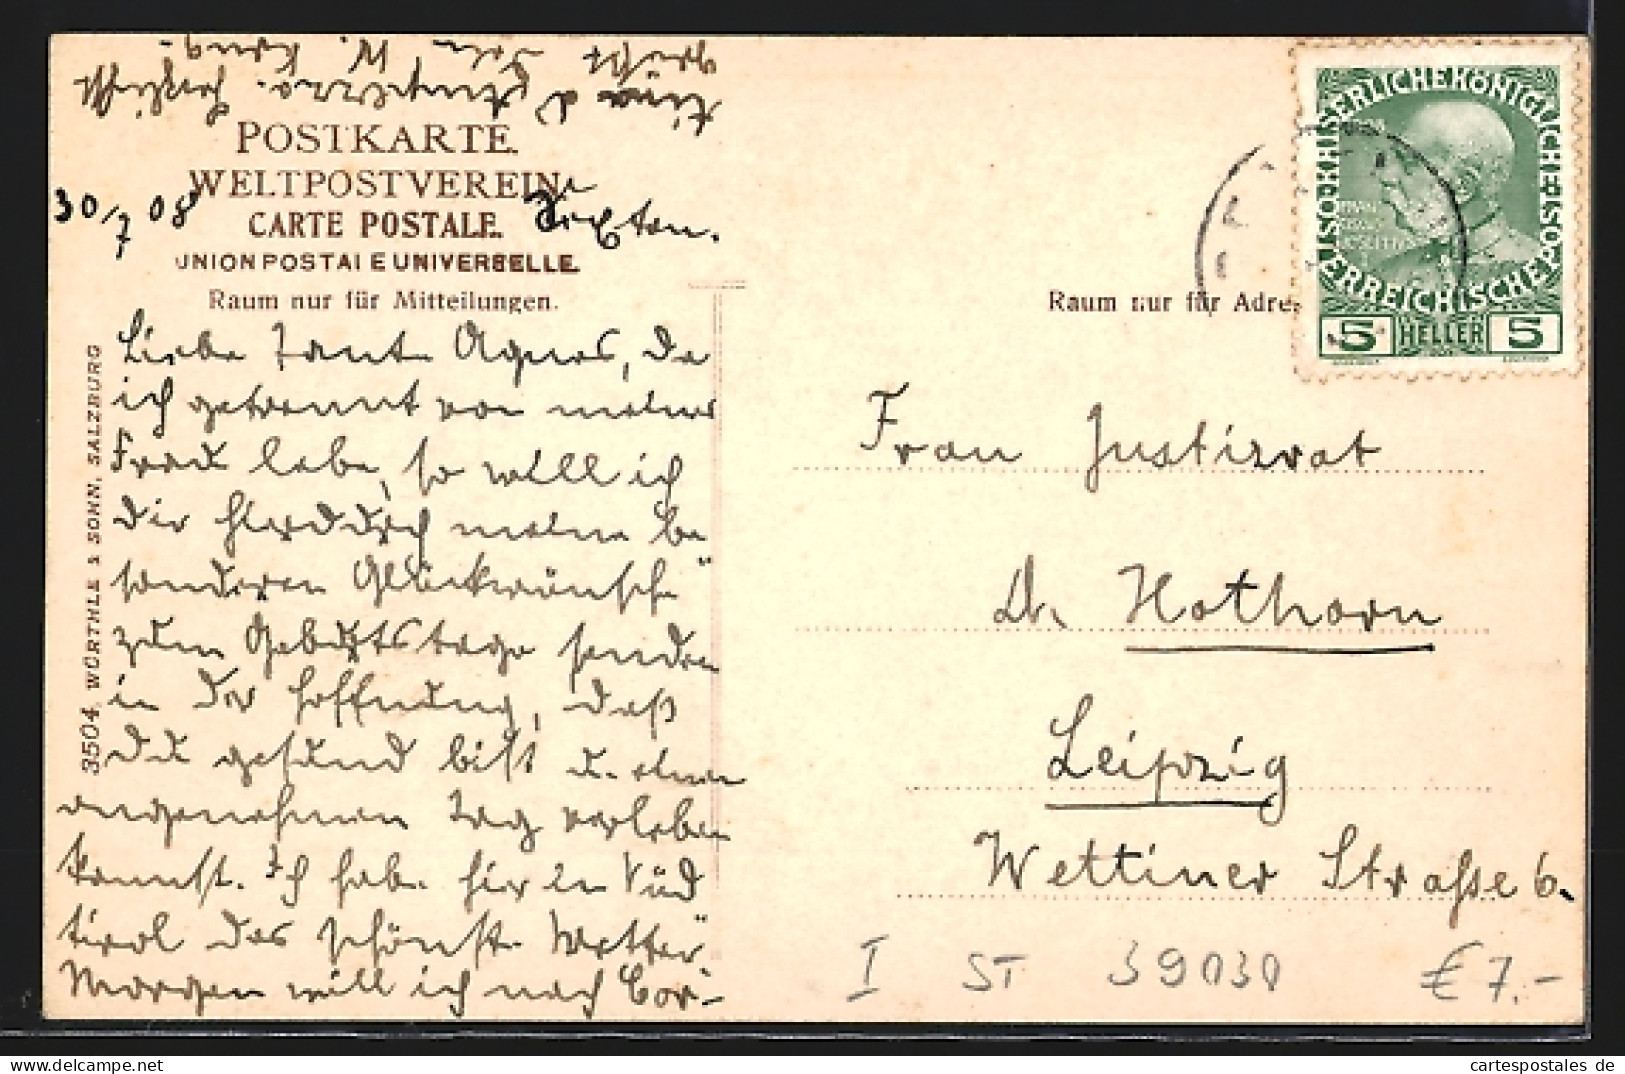 POSTKARTE.
WELTPOSTVEREIN.
CARTE POSTALE.
UNION POSTALE UNIVERSELLE.
Raum nur für Mitteilungen.
30/7 08 Sexten.
Liebe Tante Agnes, da
ich getrennt von meiner
Frau lebe, so will ich
dir hierdurch meine be
sonderen Glückwünsche
zum Geburtstage senden
in der Hoffnung, daß
du gesund bist u. einen
angenehmen Tag verleben
kannst. Ich habe hier in Süd
tirol das schönste Wetter
Morgen will ich nach Cor-
tina d'Ampezzo. Herzlichst
grüßt Dein W.
3504 WÜRTHLE & SOHN, SALZBURG
Raum nur für Adre
KAISERLICHEKÖNIGLICHE ÖSTERREICHISCHE POST
5 HELLER 5
Frau Justizrat
Dr. Hothorn
Leipzig
Wettiner Strasse 6.
I ST 39030 €7.-
cartespostales de